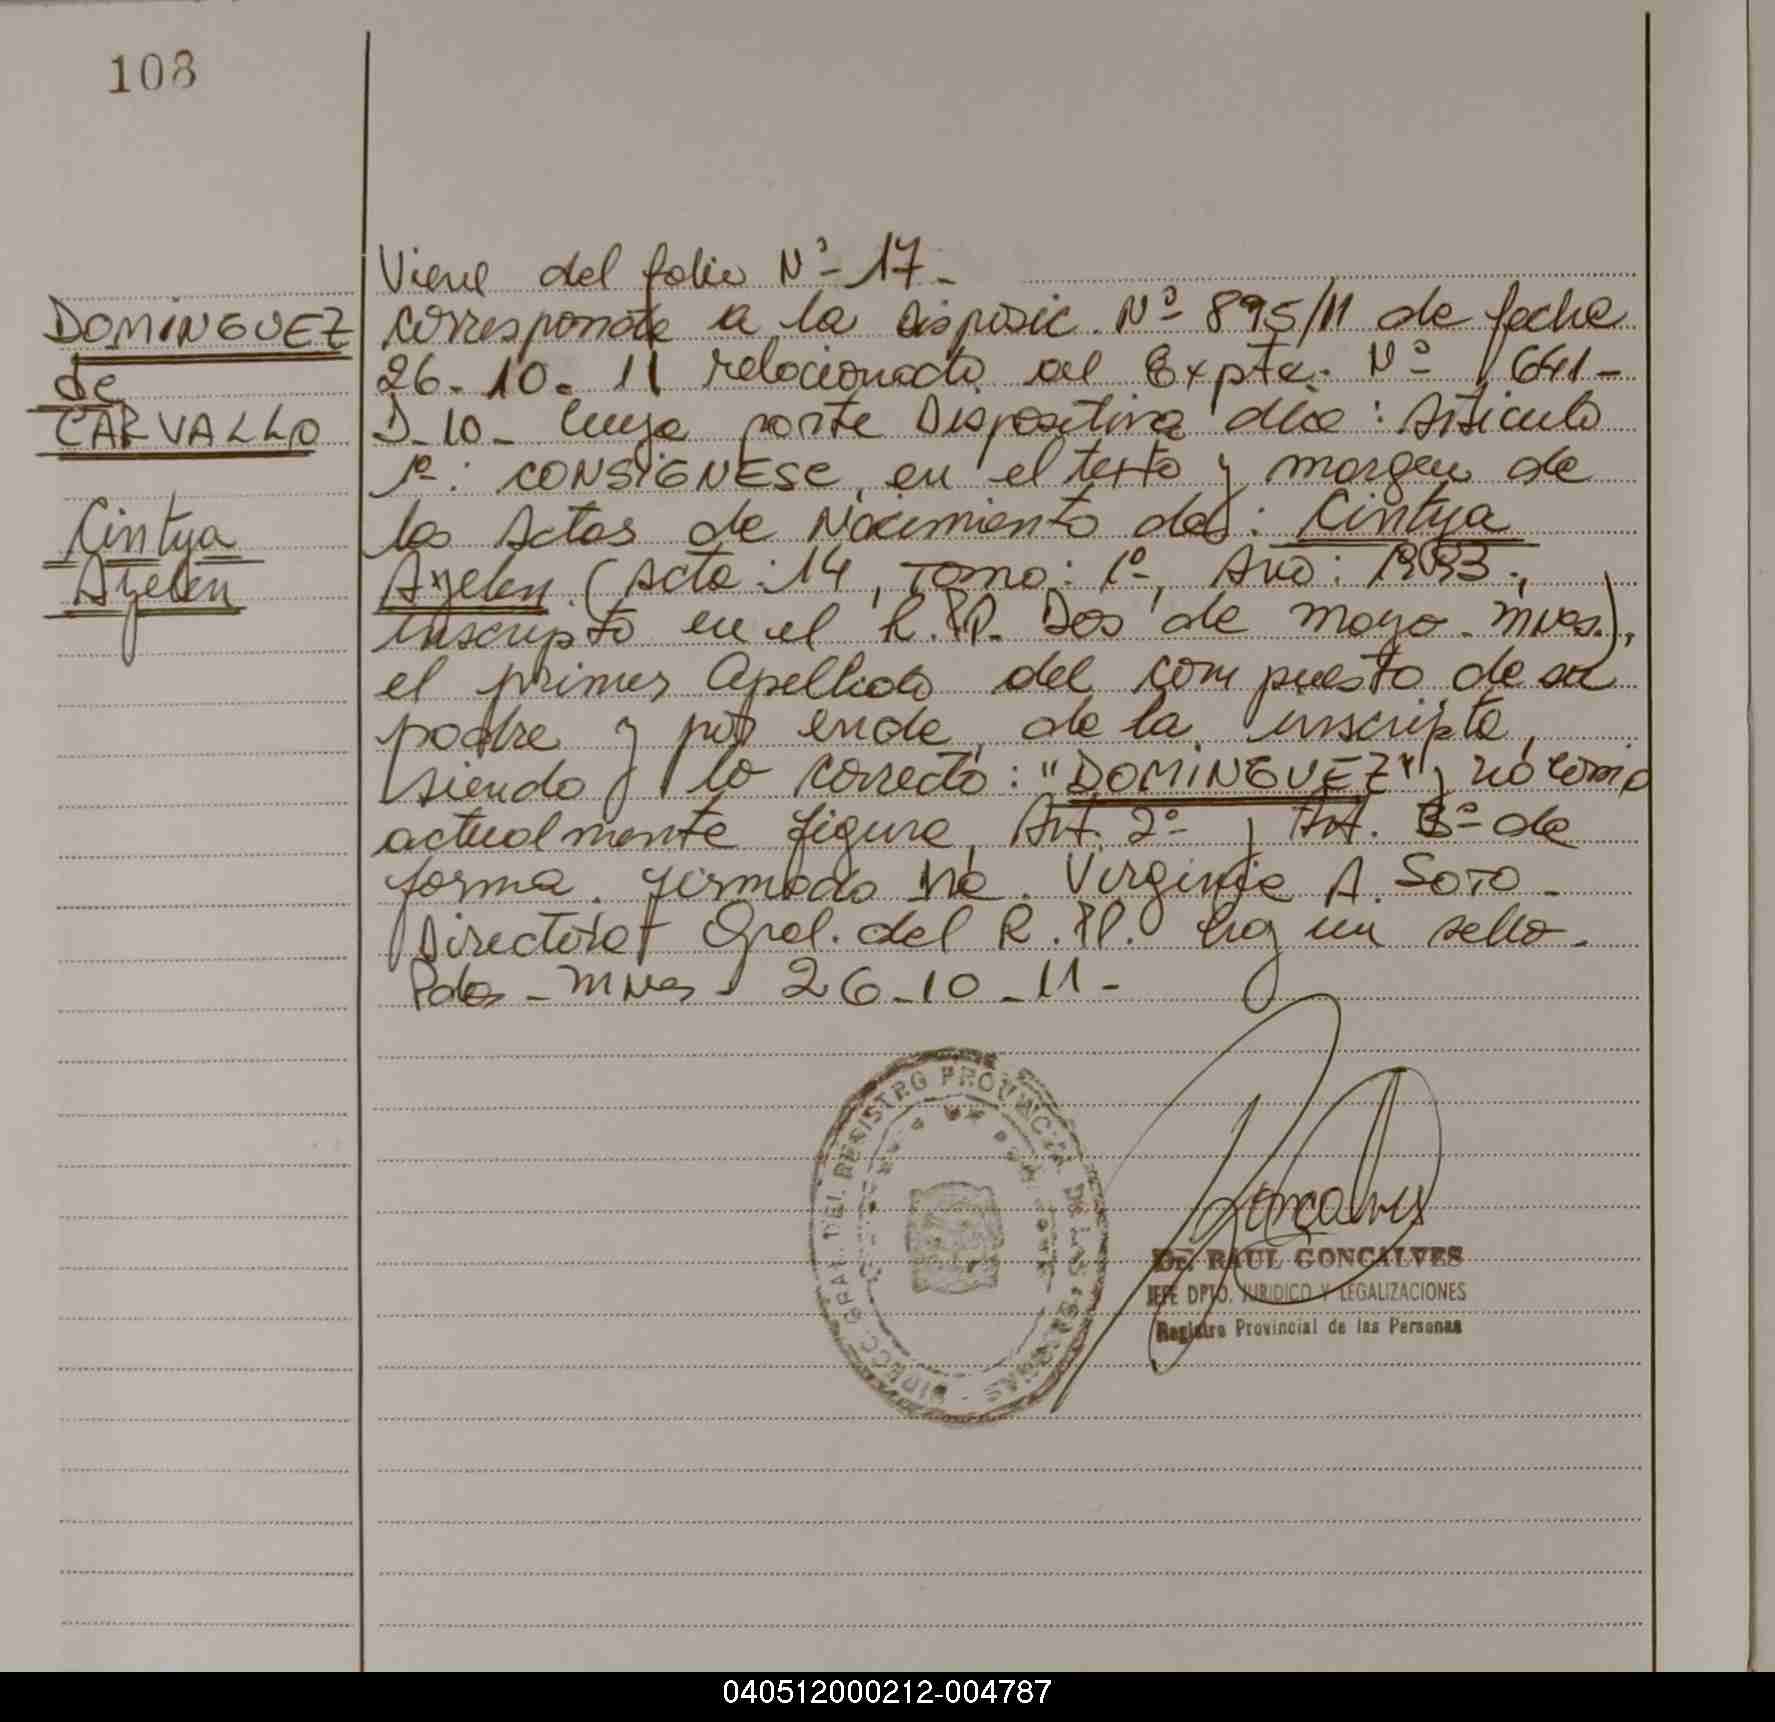 108
DOMINGUEZ
de
CARVALLO
Cintya
Ayelen
Viene del folio Nº 17-
Corresponde a la Disposic. Nº 895/11 de fecha
26-10-11 relacionado al Expte. Nº 1641-
D-10- Cuya parte Dispositiva dice: Articulo
1º: CONSIGNESE, en el texto y margen de
las Actas de Nacimiento de: Cintya
Ayelen (Acta: 14, Tomo: 1º, Año: 1993.,
inscripto en el R.PP. Dos de mayo. mnes.),
el primer apellido del compuesto de su
padre y por ende, de la inscripta,
siendo lo correcto: "DOMINGUEZ" y no como
actualmente figura, Art. 2º y Art. 3º de
forma. firmado Virginia A. Soto-
Directora Gral. del R.PP. hay un sello.
Pdas-mnes 26-10-11-
DIRECC. GRAL. DEL REGISTRO PROVINCIAL DE LAS PERSONAS
Dr. RAUL GONCALVES
JEFE DPTO. JURIDICO Y LEGALIZACIONES
Registro Provincial de las Personas
040512000212-004787